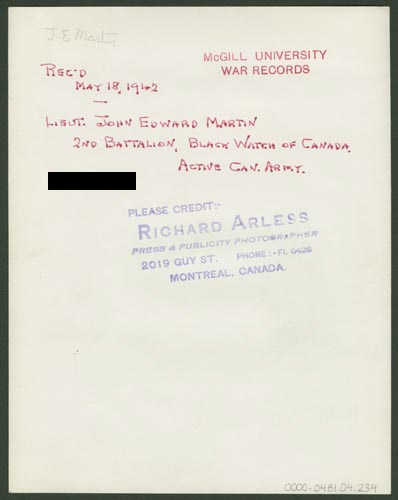 J. E Martin
McGILL UNIVERSITY
WAR RECORDS
REC'D
MAY 18, 1942
—
LIEUT. JOHN EDWARD MARTIN
2ND BATTALION, BLACK WATCH OF CANADA.
ACTIVE CAN. ARMY.
PLEASE CREDIT:-
RICHARD ARLESS
PRESS & PUBLICITY PHOTOGRAPHER
2019 GUY ST. PHONE:-FI. 6426
MONTREAL, CANADA.
0000-0481.04.234